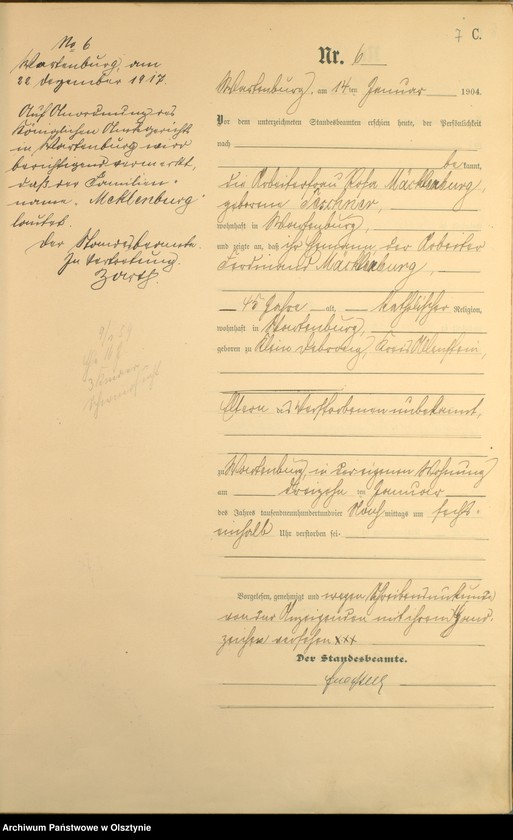 7 C.
No 6
Wartenburg, am
22. Dezember 1917.
Auf Anordnung des
Königlichen Amtsgerichts
in Wartenburg wird
berichtigend vermerkt,
daß der Familien-
name „Mecklenburg“
lautet.
Der Standesbeamte.
In Vertretung.
Nr. 6
Wartenburg, am 14ten Januar 1904.
Vor dem unterzeichneten Standesbeamten erschien heute, der Persönlichkeit
nach
bekannt,
die Arbeiterfrau Rosa Mäcklenburg,
geborene
wohnhaft in Wartenburg,
und zeigte an, daß ihr Ehemann, der Arbeiter
Ferdinand Mäcklenburg,
45 Jahre alt, katholischer Religion,
wohnhaft in Wartenburg,
geboren zu Klein Kreis Allenstein,
Eltern des Verstorbenen unbekannt,
zu Wartenburg, in der eigenen Wohnung
am dreizehn ten Januar
des Jahres tausendneunhundertundvier Nachmittags um sechs-
einhalb Uhr verstorben sei.
Vorgelesen, genehmigt und wegen Schreibensunkunde
von der Anzeigenden mit ihrem Hand-
zeichen versehen xxx
Der Standesbeamte.
Archiwum Państwowe w Olsztynie